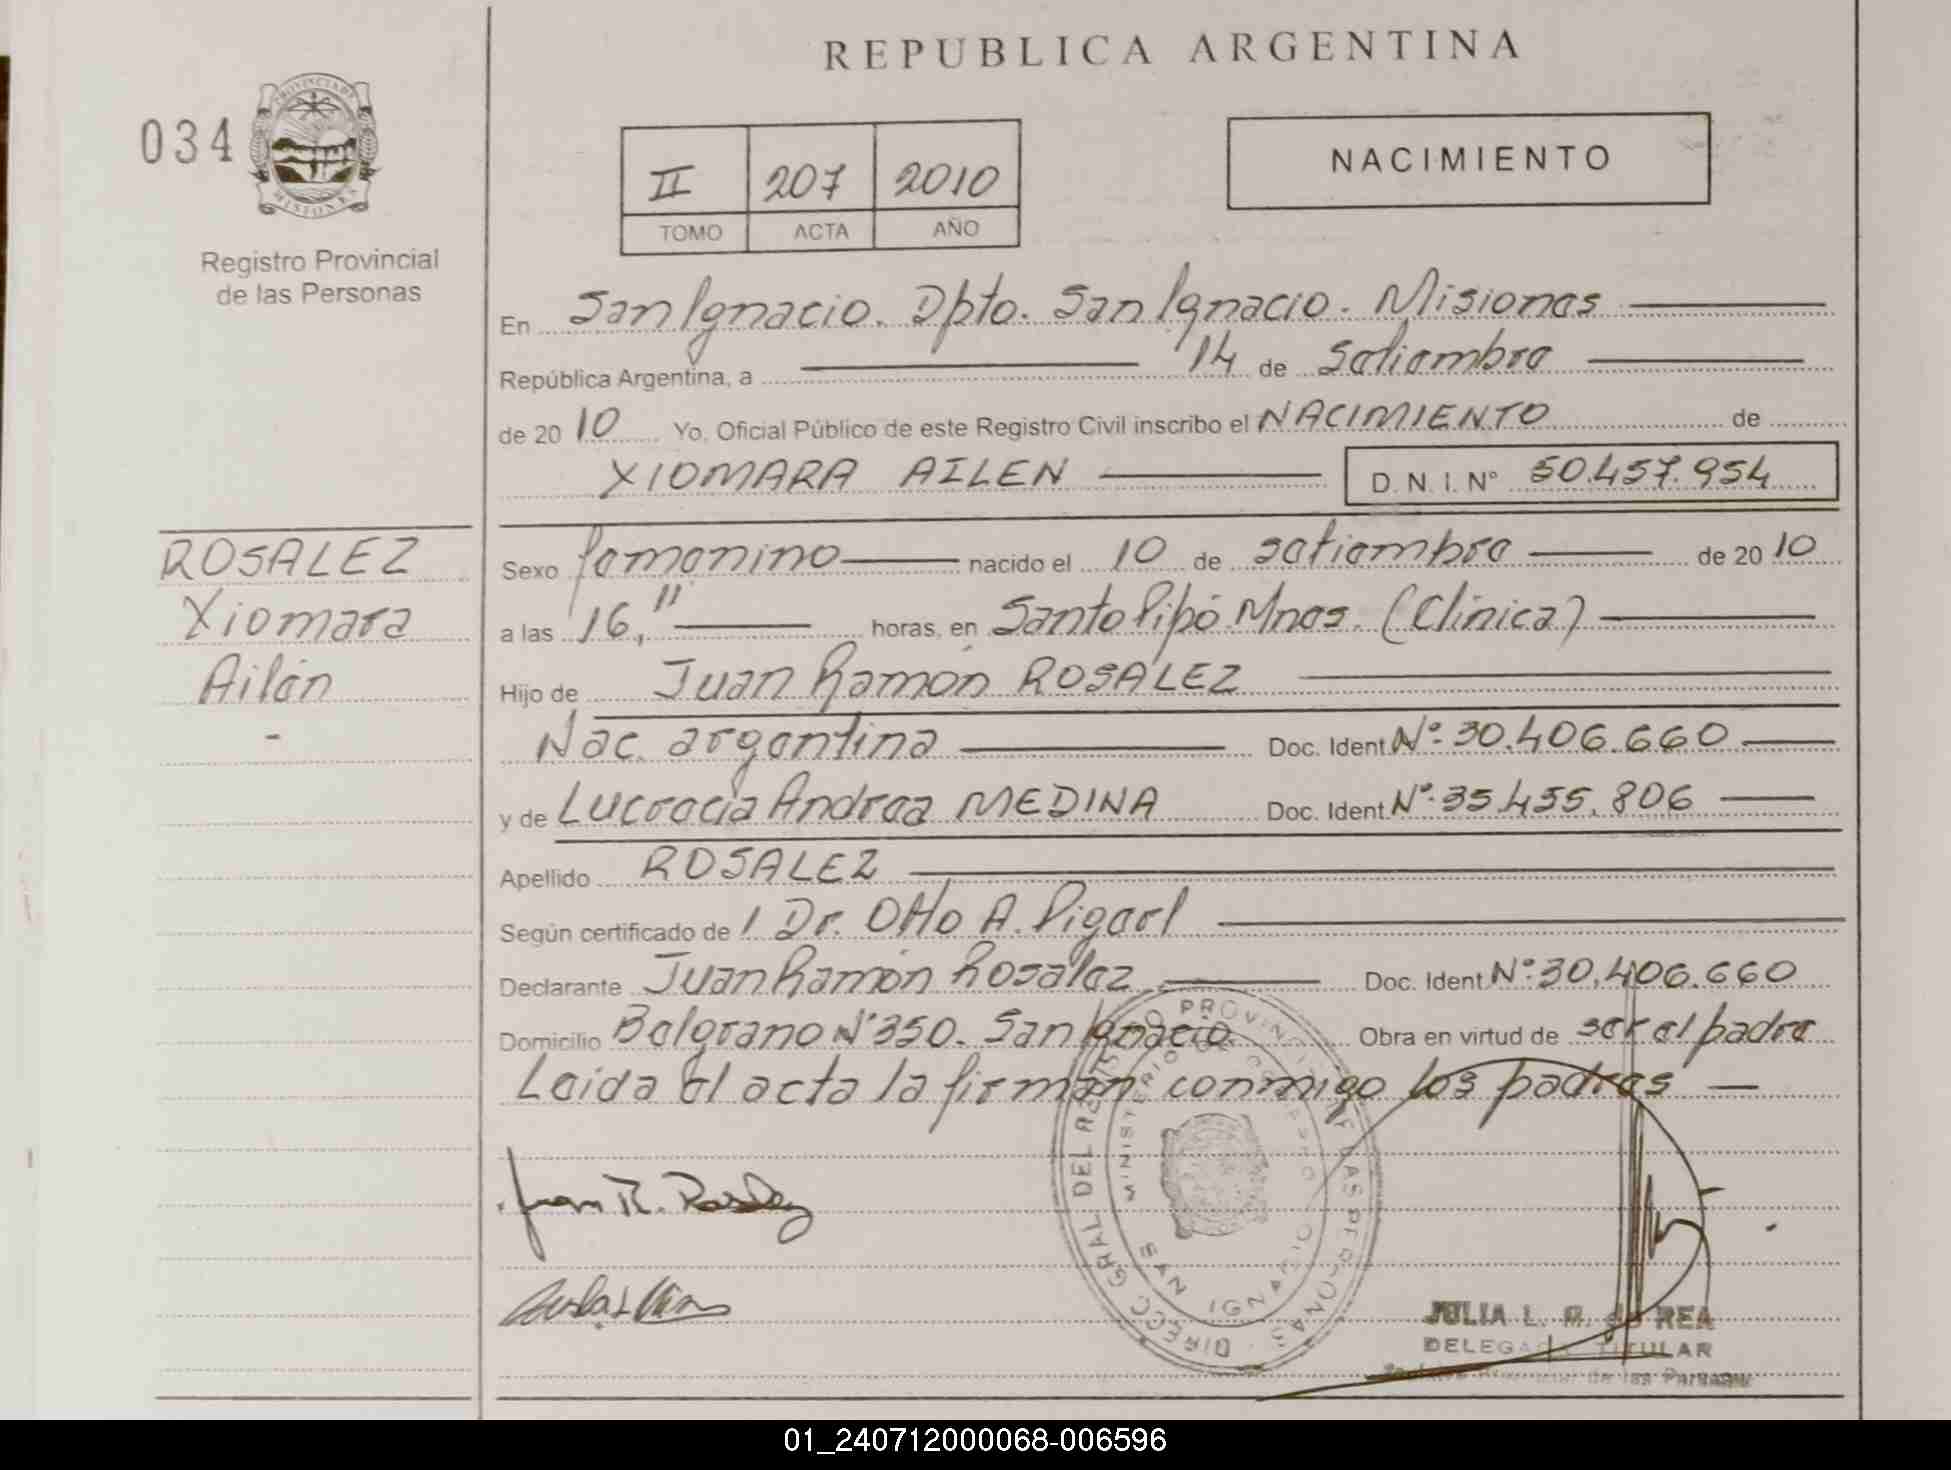 REPUBLICA ARGENTINA
034
PROVINCIA DE MISIONES
Registro Provincial
de las Personas
II 207 2010
TOMO ACTA AÑO
NACIMIENTO
En San Ignacio. Dpto. San Ignacio. Misiones
República Argentina, a 14 de Setiembre
de 2010 Yo, Oficial Público de este Registro Civil inscribo el NACIMIENTO de
XIOMARA AILEN D. N. I. Nº 50.457.954
ROSALEZ
Xiomara
Ailén
-
Sexo femenino nacido el 10 de setiembre de 2010
a las 16," horas, en Santo Pipó Mnes. (Clínica)
Hijo de Juan Ramón ROSALEZ
Nac. argentina Doc. Ident Nº 30.406.660
y de Lucrecia Andrea MEDINA Doc. Ident Nº 35.455.806
Apellido ROSALEZ
Según certificado de / Dr. Otto A.
Declarante Juan Ramón Rosalez Doc. Ident Nº 30.406.660
Domicilio Belgrano Nº 350. San Ignacio Obra en virtud de ser el padre
Leida el acta la firman conmigo los padres
Juan R. Rosalez
DIRECC GRAL DEL REGISTRO PROVINCIAL DE LAS PERSONAS
MINISTERIO DE GOBIERNO
SAN IGNACIO
JULIA L. R. de REA
DELEGADA TITULAR
de las Personas
01_240712000068-006596